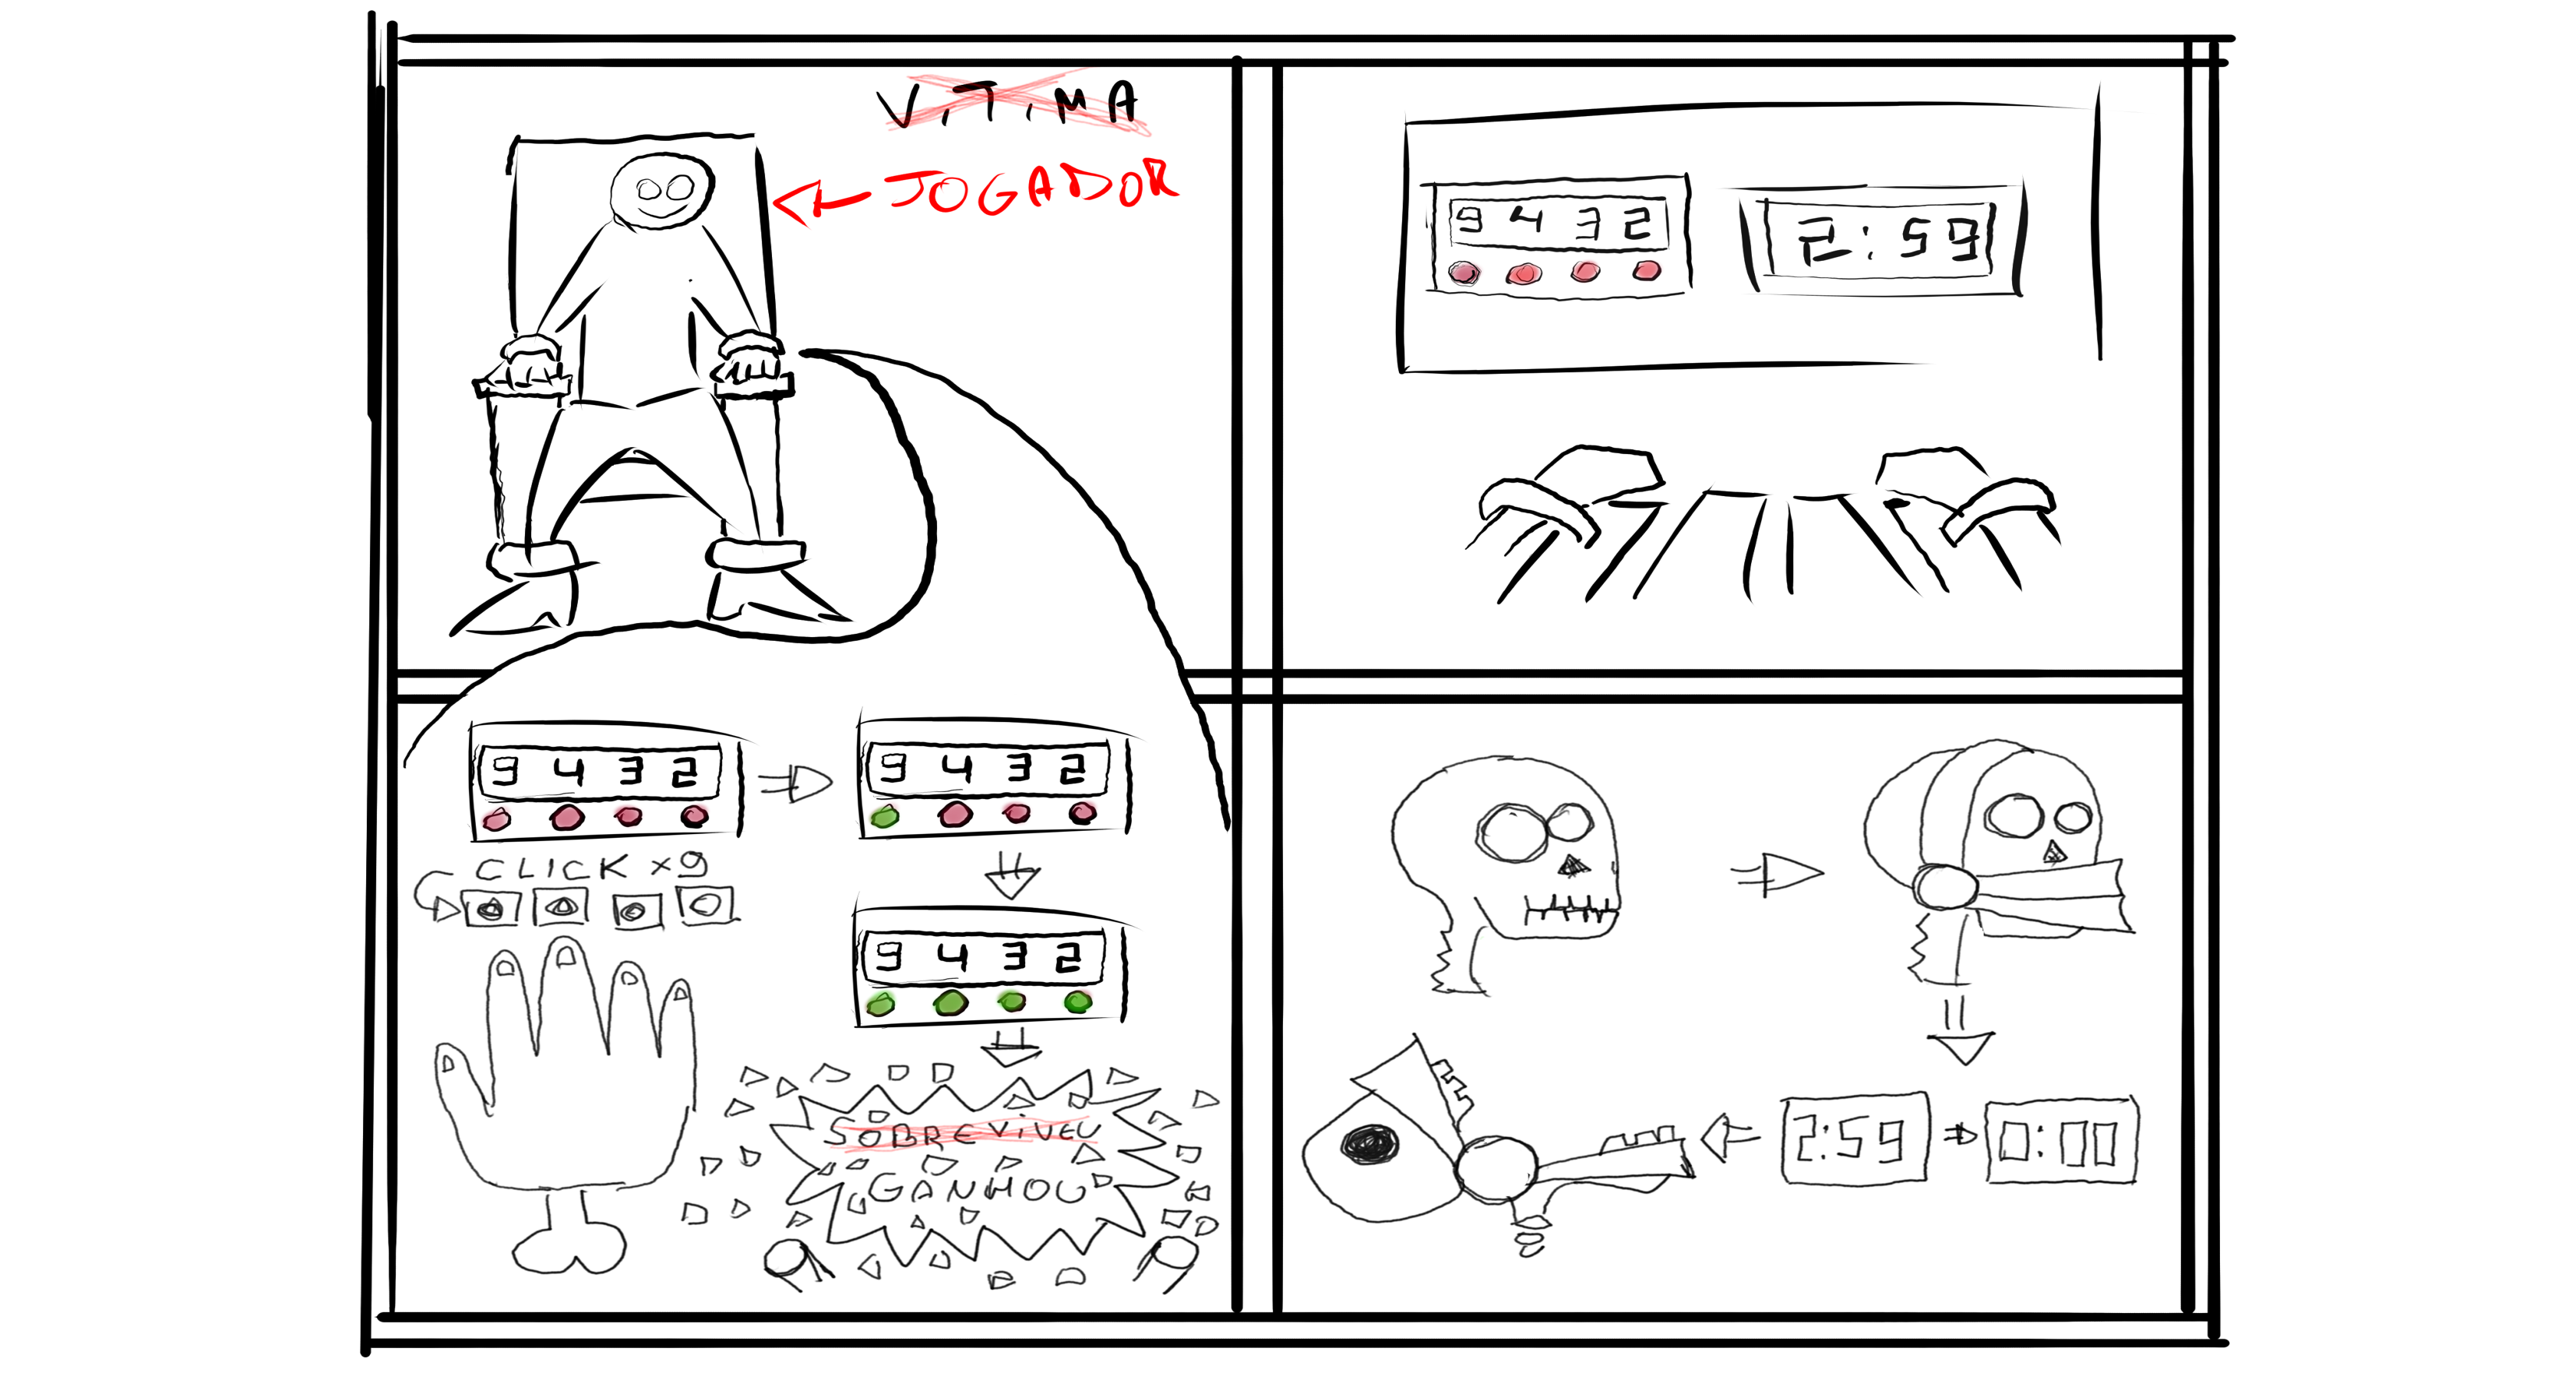 VITIMA
JOGADOR
9 4 3 2
2:59
9 4 3 2
9 4 3 2
CLICK x9
9 4 3 2
SOBREVIVEU
GANHOU
2:59
0:00